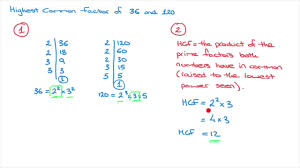 Highest Common Factor of 36 and 120
1
2 | 36
2 | 18
3 | 9
3 | 3
1
36 = 2² × 3²
2 | 120
2 | 60
2 | 30
3 | 15
5 | 5
1
120 = 2³ × 3 × 5
2
HCF = the product of the
prime factors both
numbers have in common
(raised to the lowest
power seen).
HCF = 2² × 3
= 4 × 3
HCF = 12